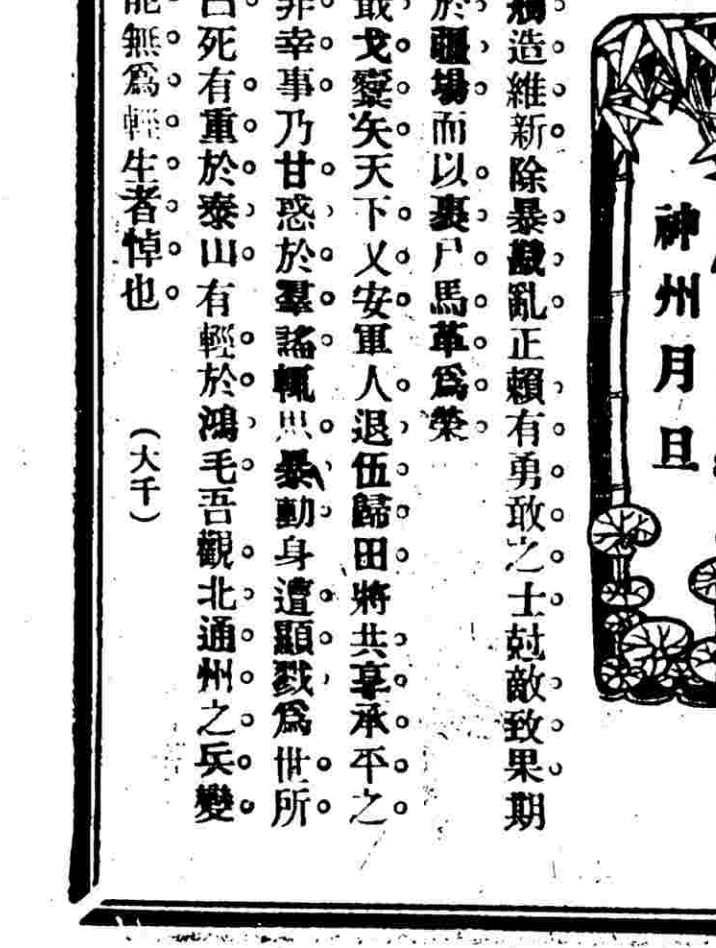 神州月旦
造維新除暴戡亂正賴有勇敢之士尅敵致果期
於疆場而以裹尸馬革爲榮
戈櫜矢天下乂安軍人退伍歸田將共享承平之
非幸事乃甘惑於羣謠輒思暴動身遭顯戮爲世所
死有重於泰山有輕於鴻毛吾觀北通州之兵變
能無爲輕生者悼也（大千）